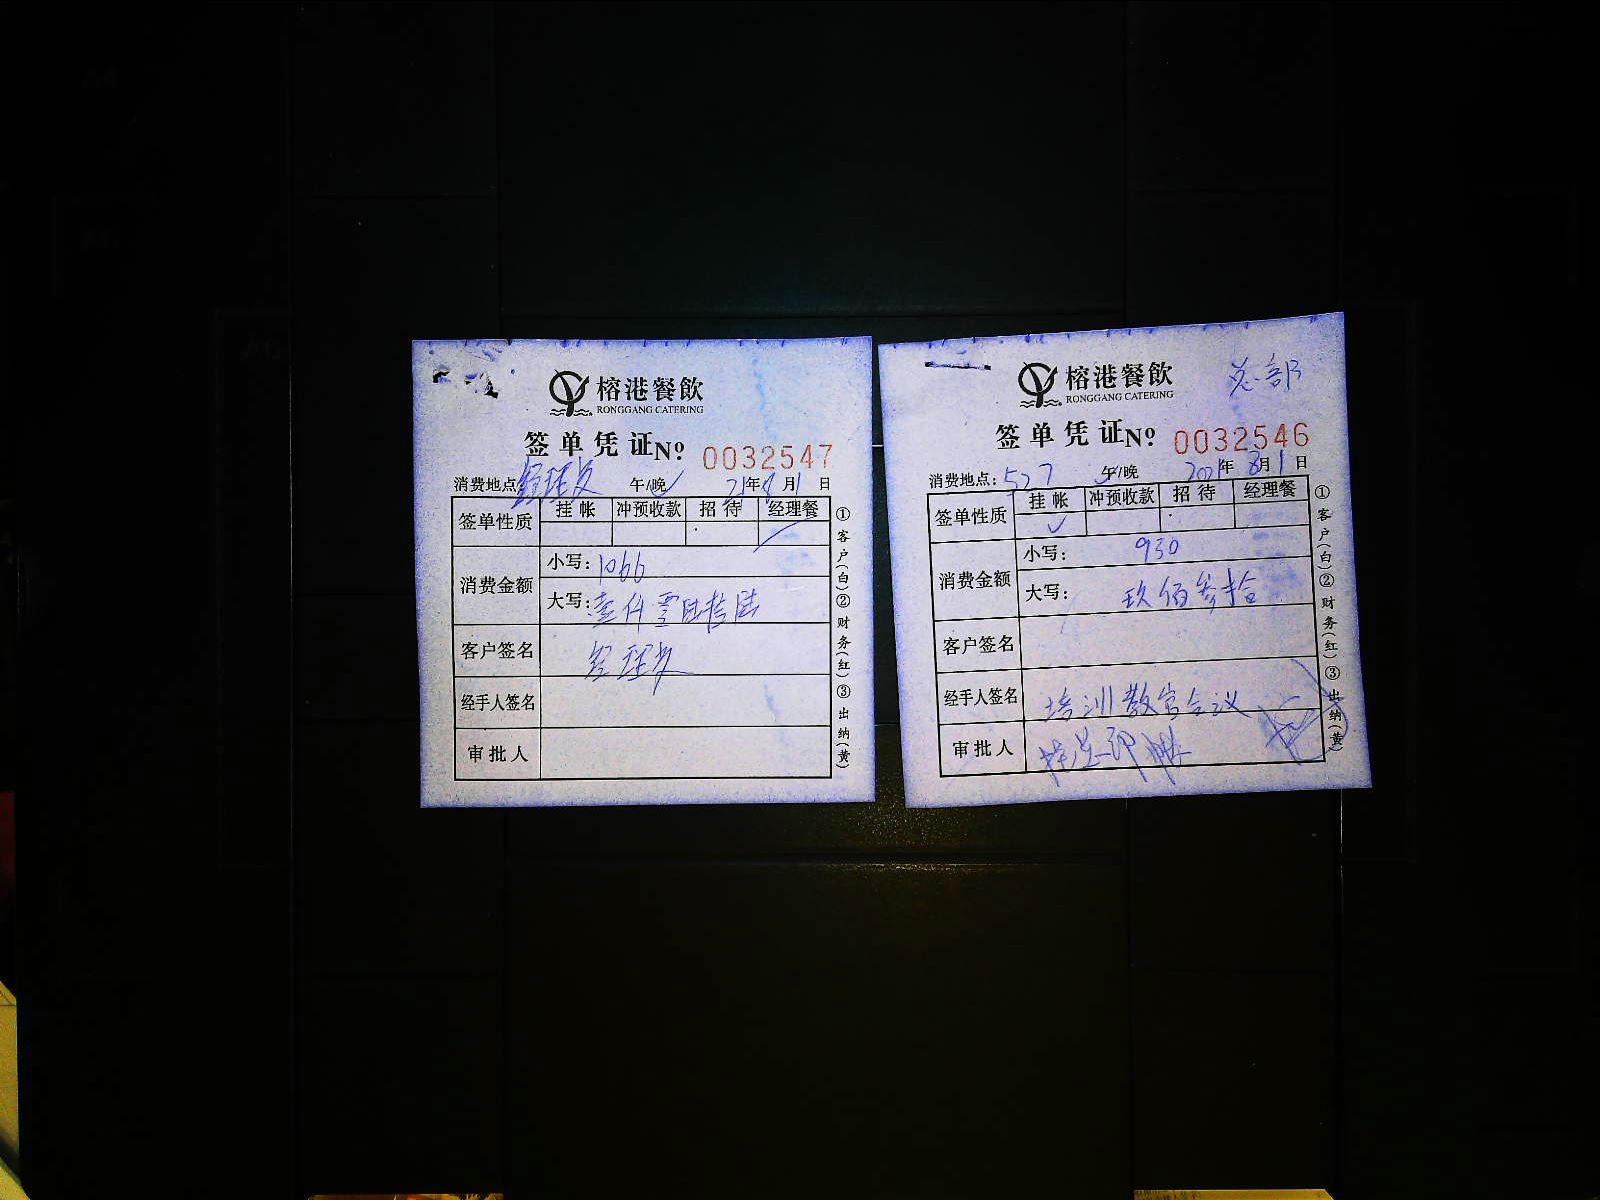 榕港餐飲
RONGGANG CATERING
签单凭证 Nº 0032547
消费地点 午/晚 21年8月1日
签单性质 挂帐 冲预收款 招待 经理餐
消费金额
小写: 1066
大写: 壹仟零陆拾陆
客户签名 经理
经手人签名
审批人
①客户(白)②财务(红)③出纳(黄)
总部
榕港餐飲
RONGGANG CATERING
签单凭证 Nº 0032546
消费地点: 527 午/晚 2021年8月1日
签单性质 挂帐 冲预收款 招待 经理餐
消费金额
小写: 930
大写: 玖佰叁拾
客户签名
经手人签名 培训教官会议
审批人
①客户(白)②财务(红)③出纳(黄)